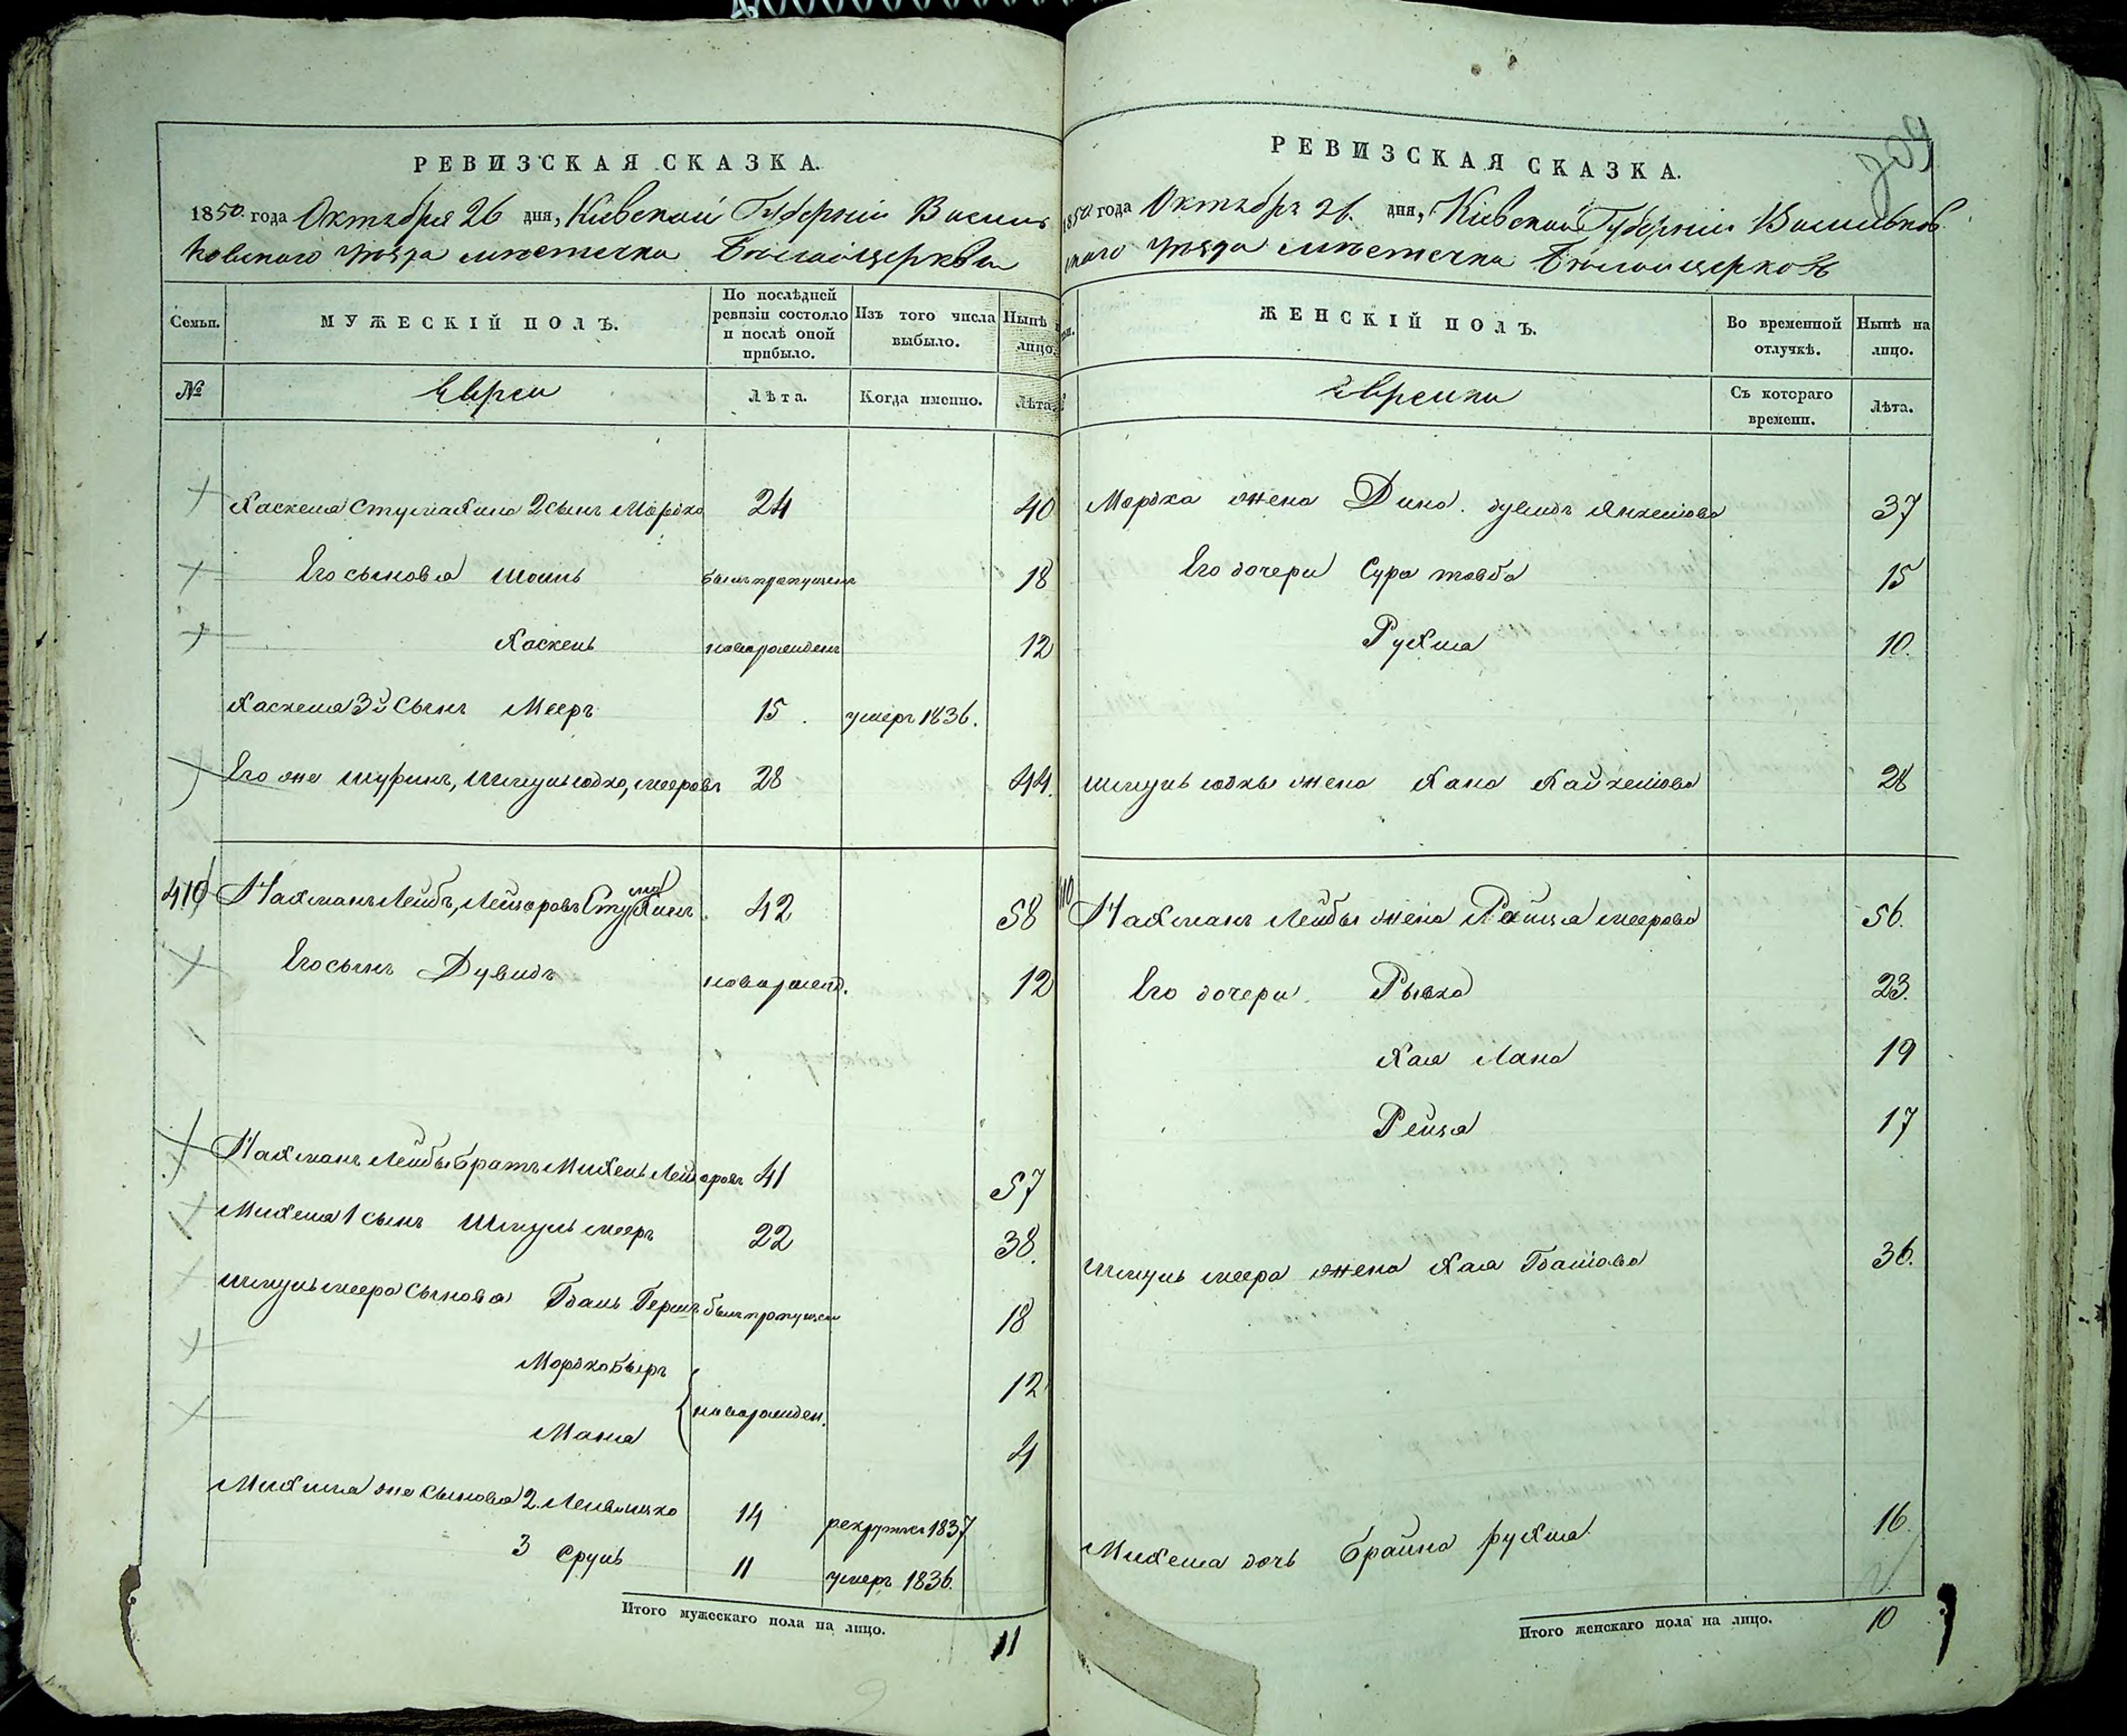 РЕВИЗСКАЯ СКАЗКА.
1850 года Октября 26 дня, Кіевской Губерніи Василь
ковского уѣзда мѣстечка Бѣлойцеркви
Семьи.
МУЖЕСКІЙ ПОЛЪ.
По послѣдней ревизіи состояло и послѣ оной прибыло.
Изъ того числа выбыло.
Нынѣ лицо.
№
Евреи
Лѣта.
Когда именно.
Лѣта.
Хаскеля Стумахина 2 сынъ Мордко 24 40
Его сыновья Шоиль былъ пропущенъ 18
Хаскель новорожденъ 12
Хаскеля 3й сынъ Мееръ 15 умеръ 1836.
Его же шуринъ, Шмуль Юдко, Мееровъ 28 44.
410 Нахманъ Лейбъ, Лейзоровъ Стумахинъ 42 58
Его сынъ Дувидъ новорожд. 12
Нахманъ Лейбы братъ Михель Лейзоровъ 41 57
Михеля 1 сынъ Шмуль Мееръ 22 38.
Шмуль Меера сыновья Герш былъ пропущен 18
Мордко Беръ 12
новорожден.
Маня 4
Михеля же сыновья 2. 14 рекрутъ 1837
3 Сруль 11 умеръ 1836.
Итого мужескаго пола на лицо. 11
РЕВИЗСКАЯ СКАЗКА.
1850 года Октября 26. дня, Кіевской Губерніи Васильков
ского уѣзда мѣстечка Бѣлойцерковь
ЖЕНСКІЙ ПОЛЪ.
Во временной отлучкѣ.
Нынѣ на лицо.
Еврейки
Съ котораго времени.
Лѣта.
Мордка жена Дина. Янкелiова 37
Его дочери Сура товба 15
Рухля 10.
Шмуль Юдкы жена Хана Хайкелiова 28
Нахманъ Лейбы жена Рейзя Меерова 56.
Его дочери Рывка 23.
Хая Лана 19
Рейзя 17
Шмуль Меера жена Хая 36.
Михеля дочь Брайна рухля 16.
Итого женскаго пола на лицо. 10